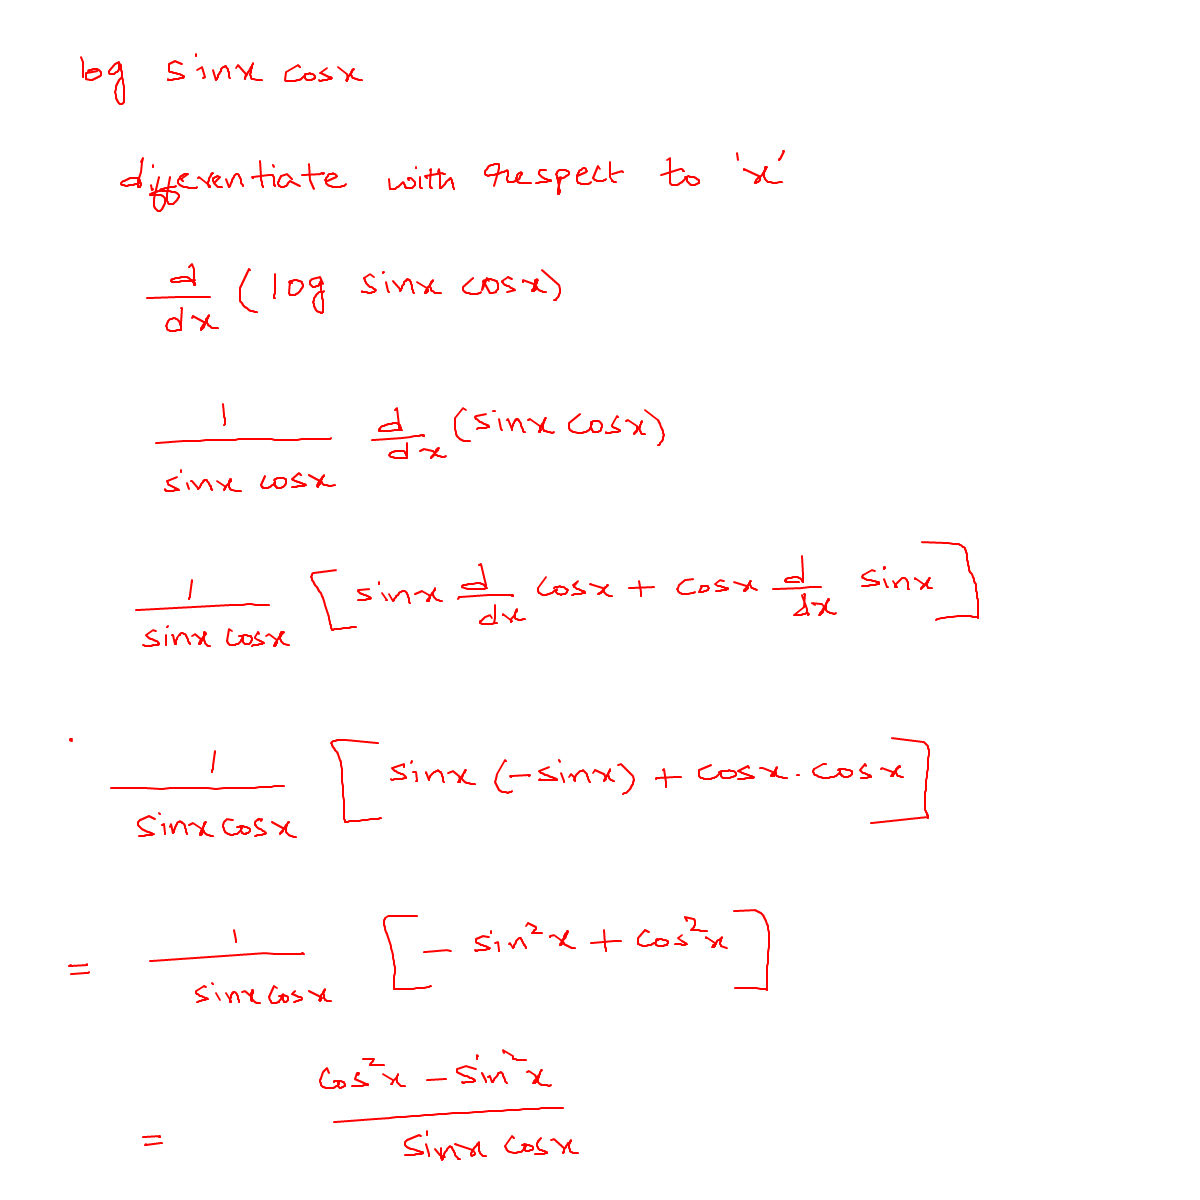 log sinx cosx
differentiate with respect to 'x'
d/dx (log sinx cosx)
1/(sinx cosx) d/dx (sinx cosx)
1/(sinx cosx) [sinx d/dx cosx + cosx d/dx sinx]
1/(sinx cosx) [sinx (-sinx) + cosx . cosx]
= 1/(sinx cosx) [- sin²x + cos²x]
= (cos²x - sin²x)/(sinx cosx)